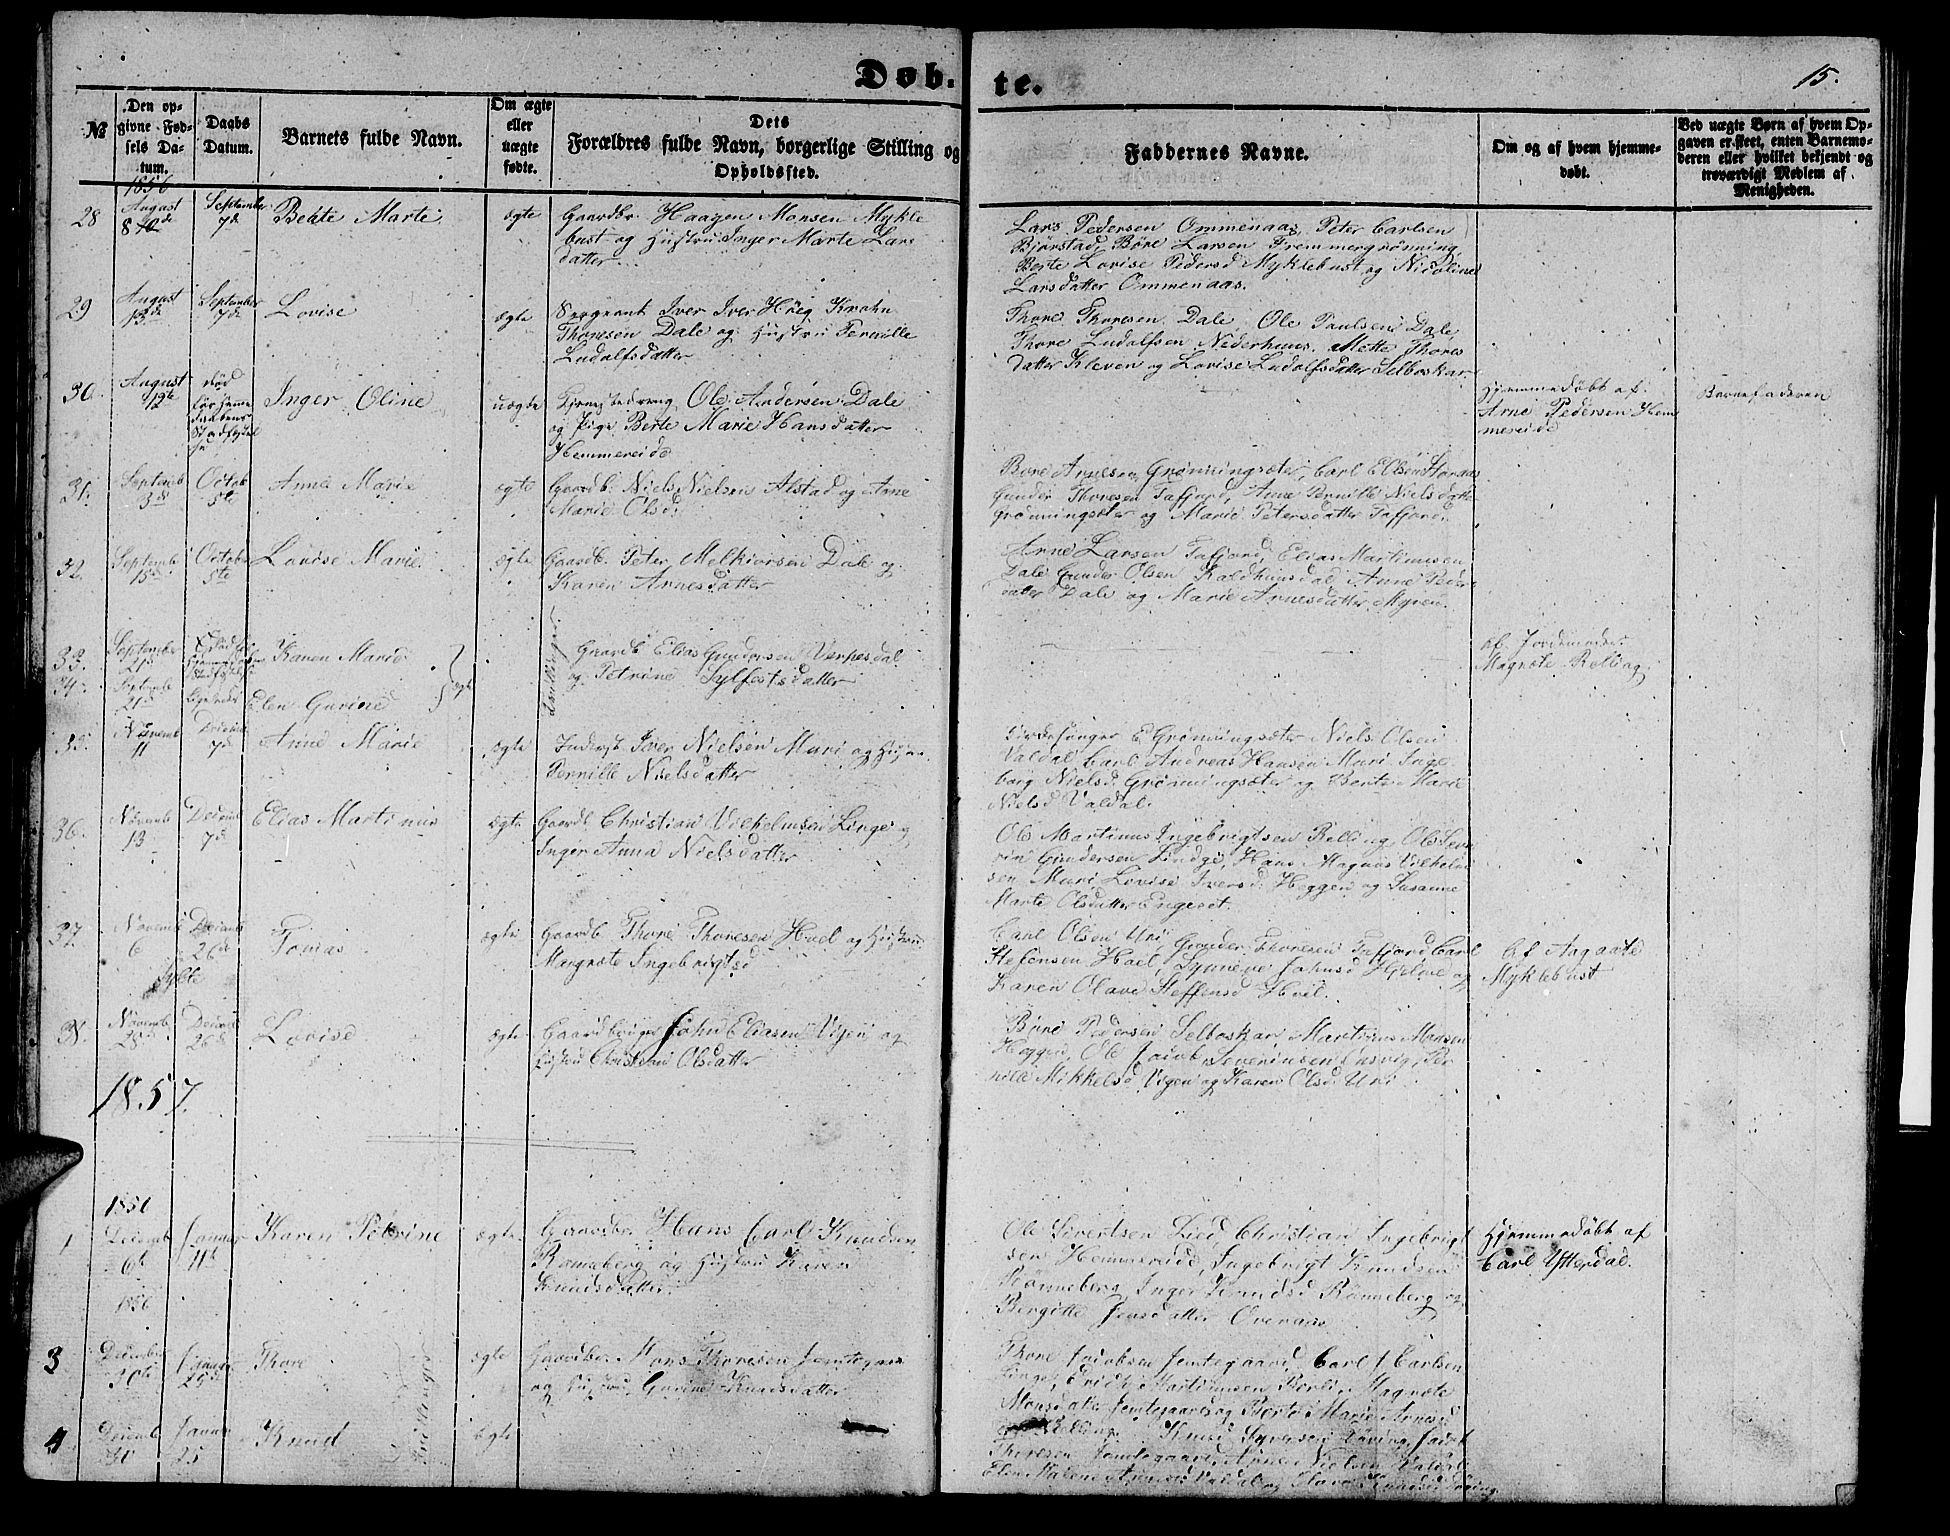 Døb-
te.
15.
No
Den op-
givne Fød-
sels Da-
tum.
Daabs
Datum.
Barnets fulde Navn.
Om ægte
eller
uægte
fødte.
Dets
Forældres fulde Navn, borgerlige Stilling og
Opholdssted.
Faddernes Navne.
Om og af hvem hjemme-
døbt.
Ved uægte Børn af hvem Op-
gaven er skeet, enten Barnemo-
deren eller hvilket bekjendt og
troværdigt Medlem af
Menigheden.
1856
28
August
8
September
7de
Beate Marte
ægte
Gaardbr Haagen Monsen Mykle
bust og Hustru Inger Marte Lars
datter
Lars Pedersen Ommenaas, Peter Carlsen
Bjørstad, Børe Larsen Fremmergrønning
Berte Lovise Pedersd Myklebust og Nicoline
Larsdatter Ommenaas.
29
August
13de
September
7de
Lovise
ægte
Sergeant Iver Iver Høeg Krohn
Thoresen Dale og Hustru Pernille
Ludolfsdatter
Thore Thoresen Dale, Ole Paulsen Dale,
Thore Ludolfsen Nederhuus. Mette Thores
datter Kleven og Lovise Ludolfsdatter Selboskar
30.
August
12te
død
før Hjemme
daabens
Stadfæstel
se
Inger Oline
uægte
Tjenestedreng Ole Andersen Dale
og Pige Berte Marie Hansdatter
Hemmereide
Hjemmedøbt af
Arne Pedersen Hem
mereide
Barnefaderen
31.
Septemb
3de
Octob
5te
Anne Marie
ægte
Gaardb. Niels Nielsen Alstad og Anne
Marie Olsd.
Bore Arnesen Grønningsæter, Carl
Gunder Thoresen Tafjord, Anne Pernille Nielsdatter
Grønningsæter og Marie Petersdatter Tafjord.
32.
Septemb
15de
Octob
5te
Lovise Marie
ægte
Gaardb. Peter Melkiorsen Dale og
Karen Arnesdatter
Arne Larsen Tafjord, Elias Martinusen
Dale Gunder Olsen Kaldhunsdal, Anne Peder
datter Dale og Marie Arnesdatter Myren.
33.
September
21de
Karen Marie
34.
Septemb
21de
Ligeledes
Elen Gurine
ægte
Tvillinger
Gaardb Elias Gundersen Verpesdal
og Petrine Sylfestsdatter
af Jordemoder
Magnote Relling
35.
Novemb
11
Decemb
7de
Anne Marie
ægte
Inderst Iver Nielsen Muri og Hustru
Pernille Nielsdatter
Kirkesanger E Grønningsæter Niels Olsen
Valdal Carl Andreas Hansen Muri Inge
borg Nielsd Grønningsæter og Berte Marie
Nielsd Valdal.
36.
Novemb
13
Decemb
7de
Elias Martinus
ægte
Gaardb Christian Vilhelmsen Linge og
Inger Anna Nielsdatter
Ole Martinus Ingebrigtsen Relling, Ole Seve
rin Gundersen Lindge, Hans Magnus Vilhelm
sen Muri Lovise Iversd. Heggen og Susanne
Marte Olsdatter Engeset.
37.
Novemb
6
Decemb
26de
Tomas
Sylte
ægte
Gaardb Thore Thoresen Hoel og Hustru
Margrete Ingebrigtsd
Carl Olsen Uri
Gunder Thoresen Tafjord Carl
Steffensen Hoel, Synneve Johnsd Hjelme og
Karen Olave Steffensd Hoel.
af Aagaate
Myklebust
Novemb
28
Decemb
26de
Lovise
ægte
Gaardbruger John Eliasen Vigen og
Hustru Christiane Olsdatter
Børe Pedersen Selboskar, Martinus Monsen
Heggen, Ole Jacob Severinsen Ensvig, Per
nille Mikkelsd Vigen og Karen Olsd Uri
1857.
1856
1
Decemb
6te
Januar
11te
Karen Petrine
ægte
Gaardbr. Hans Carl Knudsen
Rønneberg og Hustru Karen
Knudsdatter
Ole Sivertsen Lied, Christian Ingebrigt
sen Hemmereid, Ingebrigt Knudsen
Rønneberg, Inger Knudsd Rønneberg og
Bergitte Jensdatter Overaas
Hjemmedøbt af
Carl Ytterdal.
1856
3
December
30te
Januar
25de
Thore
Tvillinger
ægte
Gaardbr. Hans Thoresen Jemtegaard
og Hustru Gurine Knudsdatter
Thore Jacobsen Jemtegaard, Carl J Carlsen
Linge, Martinusen Berli Magnote
Monsdatter Jemtegaard og Berte Marie Arnesd
Relling.
4
Decemb
30
Januar
25
Knud
ægte
Knud Syversen Døving, Jacob
Thoresen Jemtegaard, Arne Nielsen Valdal
Elen Malene Arnesd Valdal og Knudsd Døving.